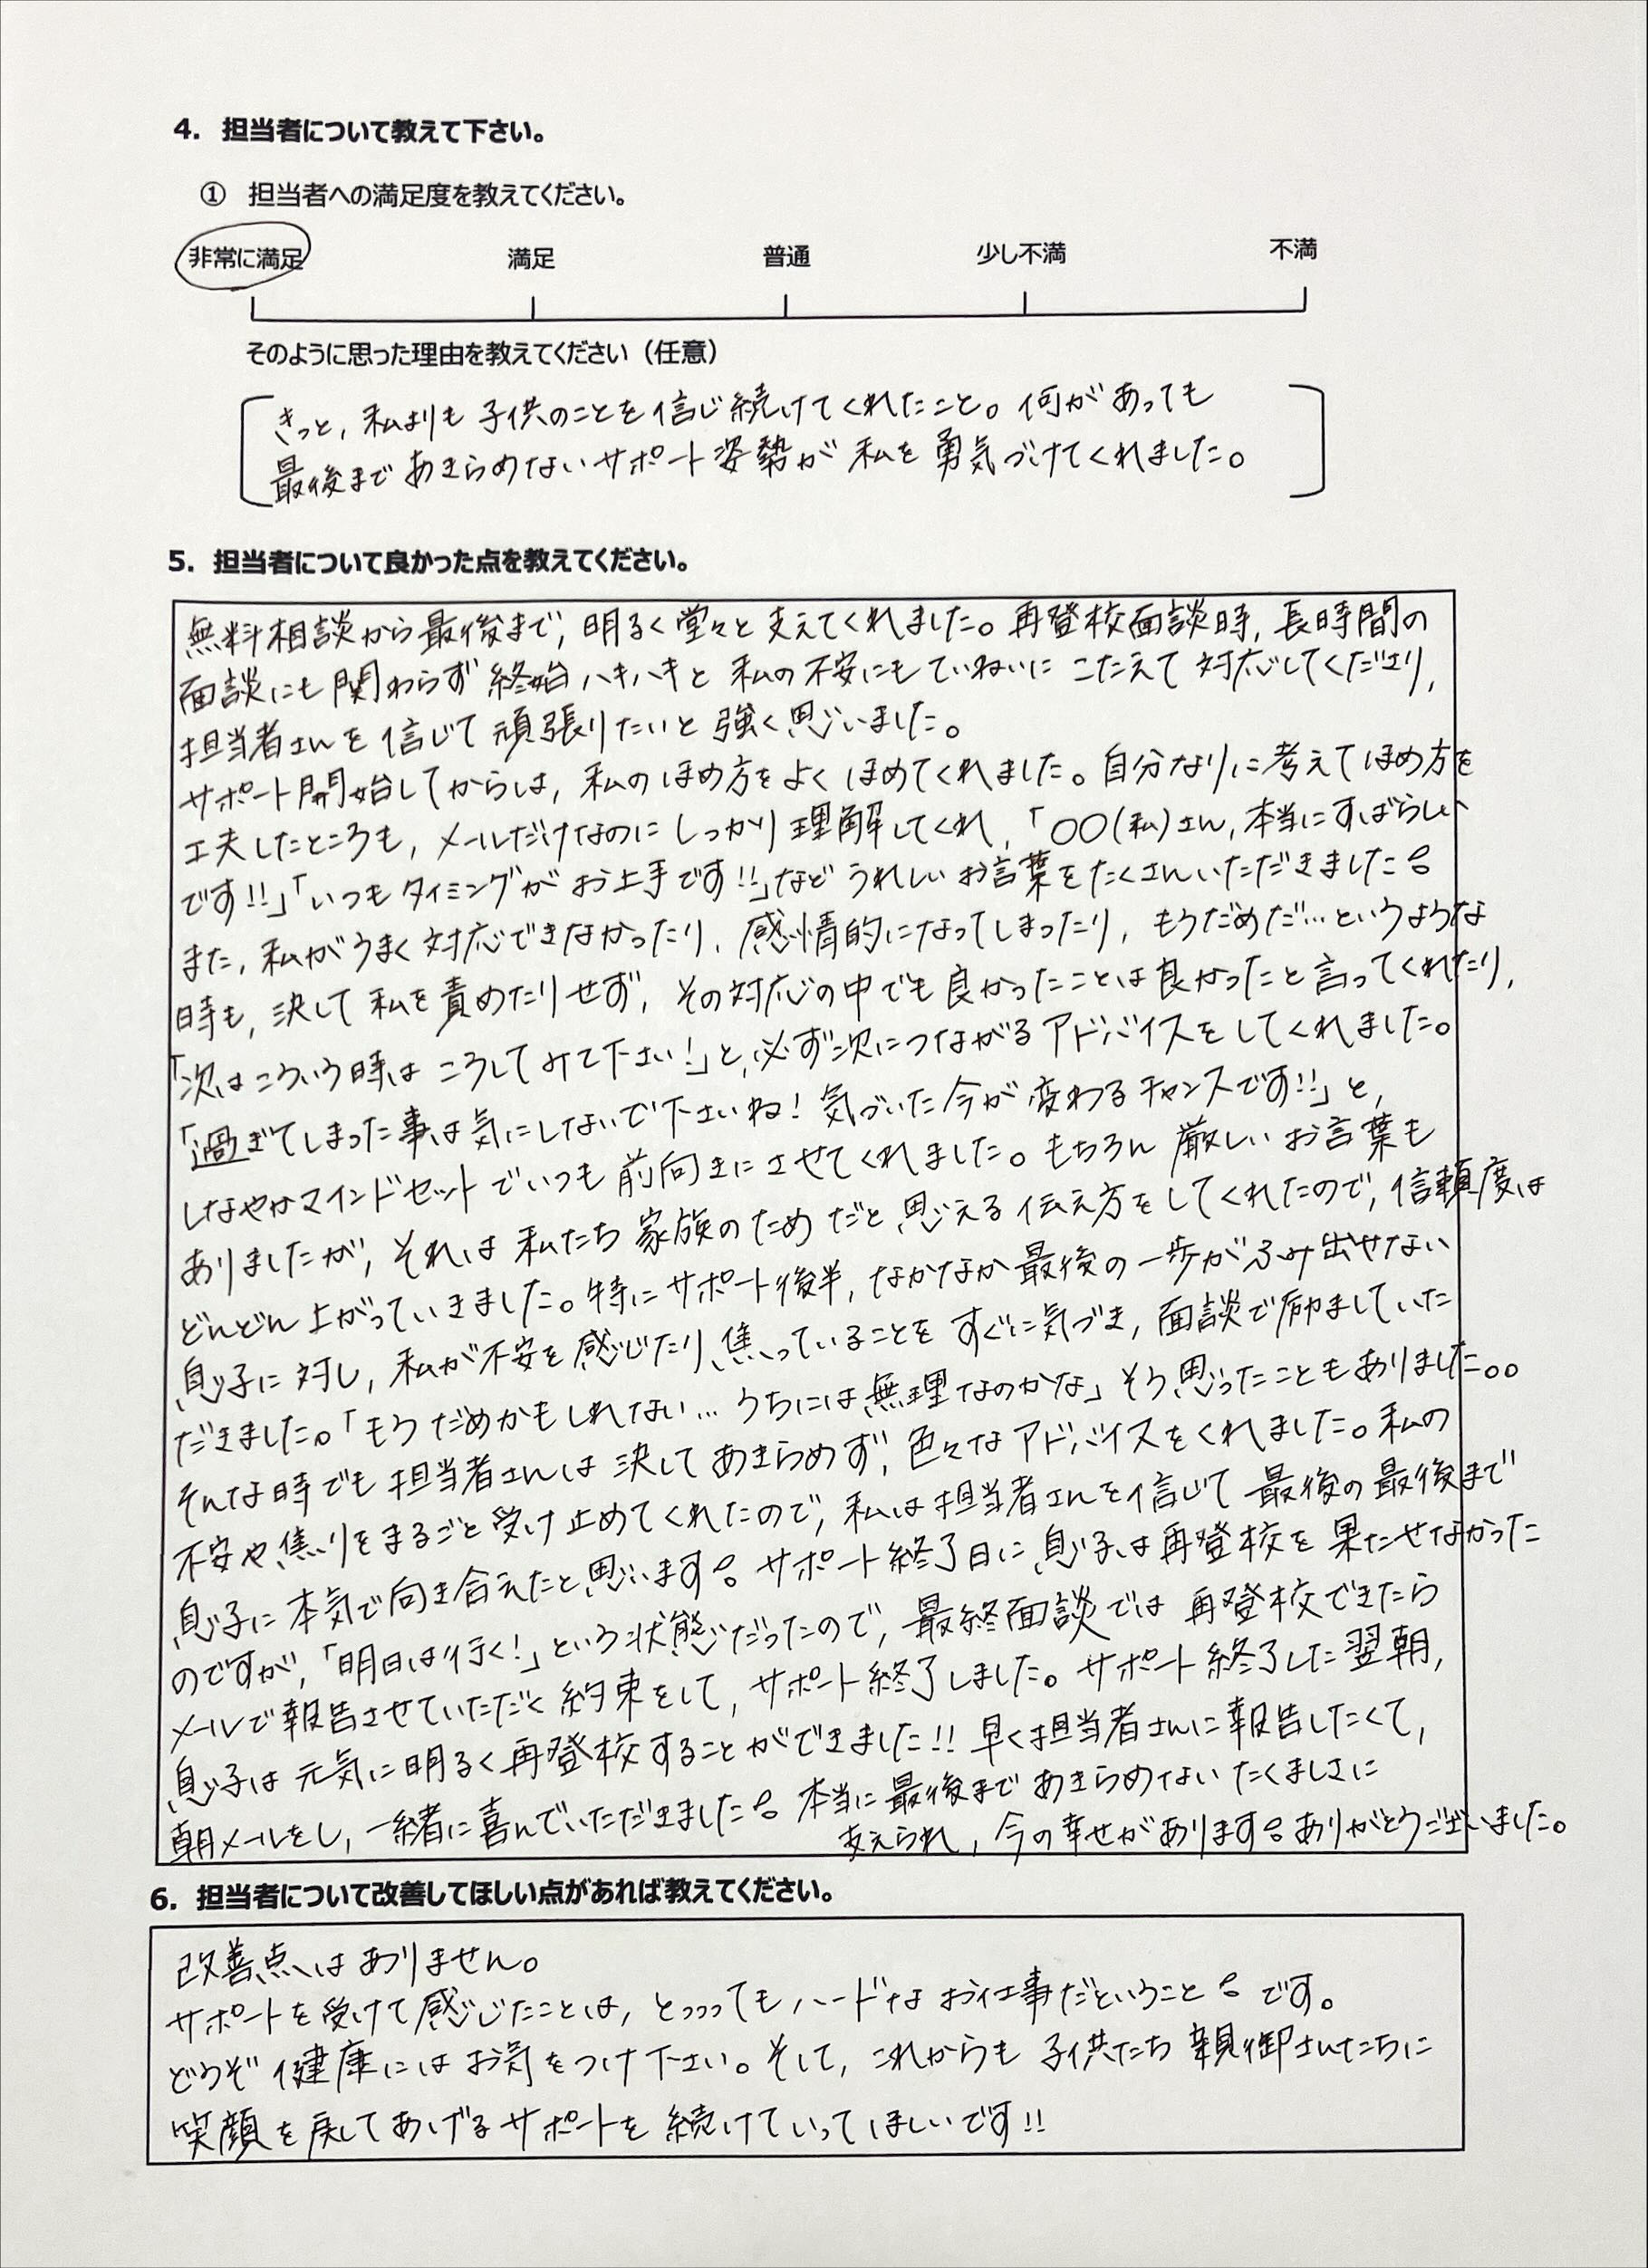 4. 担当者について教えて下さい。
① 担当者への満足度を教えてください。
非常に満足 満足 普通 少し不満 不満
そのように思った理由を教えてください（任意）
きっと, 私よりも 子供のことを信じ続けてくれたこと。何があっても
最後まであきらめないサポート姿勢が 私を勇気づけてくれました。
5. 担当者について良かった点を教えてください。
無料相談から最後まで, 明るく堂々と支えてくれました。再登校面談時, 長時間の
面談にも関わらず 終始ハキハキと 私の不安にもていねいに こたえて対応してくださり,
担当者さんを信じて頑張りたいと強く思いました。
サポート開始してからは, 私のほめ方をよくほめてくれました。自分なりに考えてほめ方を
工夫したところも, メールだけなのにしっかり理解してくれ, 「〇〇(私)さん, 本当にすばらしい
です!!」「いつもタイミングがお上手です!!」など うれしいお言葉をたくさんいただきました。
また, 私がうまく対応できなかったり, 感情的になってしまったり, もうだめだ…というような
時も, 決して私を責めたりせず, その対応の中でも良かったことは良かったと言ってくれたり,
「次はこういう時は こうしてみて下さい!」と, 必ず次につながるアドバイスをしてくれました。
「過ぎてしまった事は気にしないで下さいね! 気づいた今が変わるチャンスです!!」と,
しなやかマインドセットでいつも前向きにさせてくれました。もちろん 厳しいお言葉も
ありましたが, それは私たち家族のためだと思える伝え方をしてくれたので, 信頼度は
どんどん上がっていきました。特にサポート後半, なかなか最後の一歩がふみ出せない
息子に対し, 私が不安を感じたり, 焦っていることをすぐに気づき, 面談で励ましていた
だきました。「もうだめかもしれない… うちには無理なのかな」そう思ったこともありました。。
そんな時でも担当者さんは決してあきらめず, 色々なアドバイスをくれました。私の
不安や焦りをまるごと受け止めてくれたので, 私は担当者さんを信じて最後の最後まで
息子に本気で向き合えたと思います。サポート終了日に息子は再登校を果たせなかった
のですが, 「明日は行く!」という状態だったので, 最終面談では再登校できたら
メールで報告させていただく約束をして, サポート終了しました。サポート終了した翌朝,
息子は元気に明るく再登校することができました!! 早く担当者さんに報告したくて,
朝メールをし, 一緒に喜んでいただきました。本当に最後まであきらめないたくましさに
支えられ, 今の幸せがあります。ありがとうございました。
6. 担当者について改善してほしい点があれば教えてください。
改善点はありません。
サポートを受けて感じたことは, とっっってもハードなお仕事だということ。です。
どうぞ健康にはお気をつけ下さい。そして, これからも子供たち 親御さんたちに
笑顔を戻してあげるサポートを続けていってほしいです!!